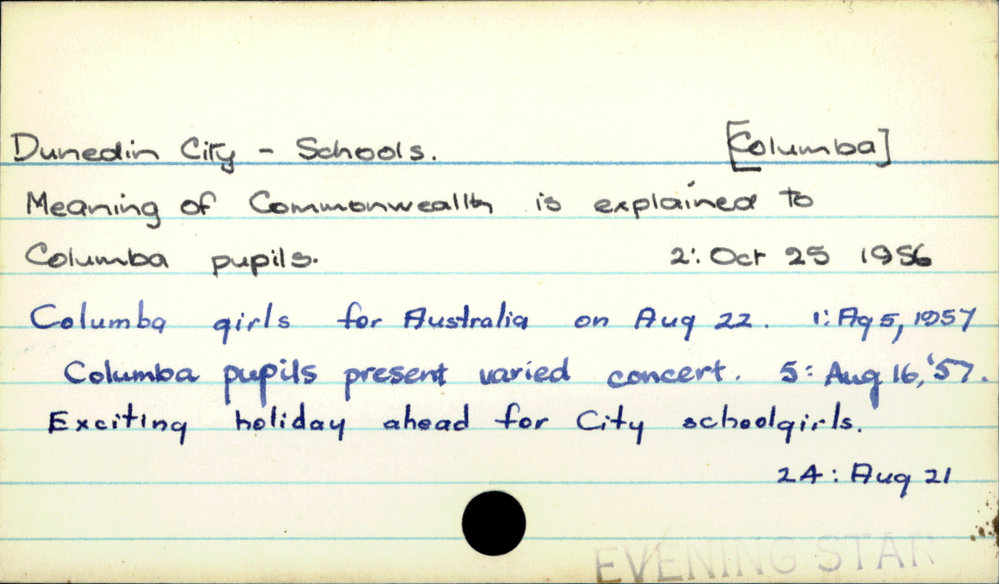 Dunedin City - Schools. [Columba]
Meaning of Commonwealth is explained to
Columba pupils. 2: Oct 25 1956
Columba girls for Australia on Aug 22. 1: Ag 5, 1957
Columba pupils present varied concert. 5: Aug 16, '57.
Exciting holiday ahead for City schoolgirls.
2A: Aug 21
EVENING STAR